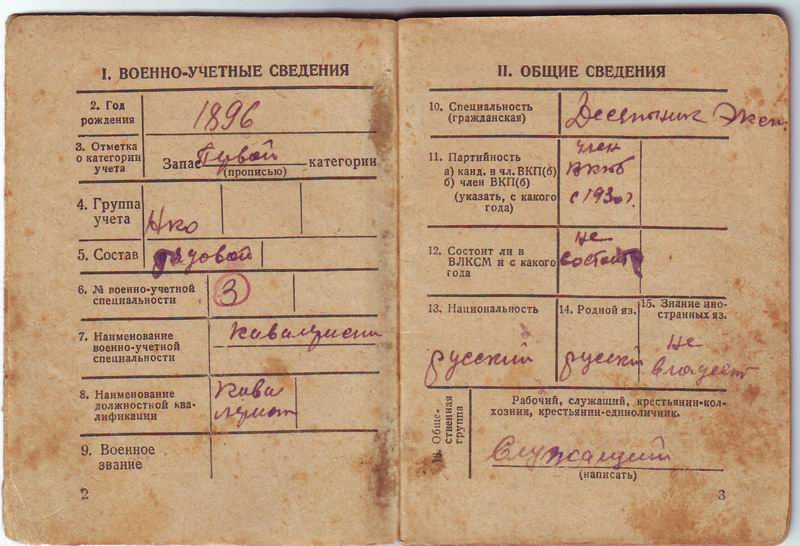 I. ВОЕННО-УЧЕТНЫЕ СВЕДЕНИЯ
2. Год
рождения
1896
3. Отметка
о категории
учета
Запас Первой категории
(прописью)
4. Группа
учета
Нко
5. Состав
рядовой
6. № военно-учетной
специальности
3
7. Наименование
военно-учетной
специальности
Кавалерист
8. Наименование
должностной ква-
лификации
Кава
лерист
9. Военное
звание
2
II. ОБЩИЕ СВЕДЕНИЯ
10. Специальность
(гражданская)
Десятник
11. Партийность
а) канд. в чл. ВКП(б)
б) член ВКП(б)
(указать, с какого
года)
член
ВКПб
с 1930 г.
12. Состоит ли в
ВЛКСМ и с какого
года
не
состоит
13. Национальность
русский
14. Родной яз.
русский
15. Знание ино-
странных яз.
не
владеет
16. Обще-
ственная
группа
Рабочий, служащий, крестьянин-кол-
хозник, крестьянин-единоличник.
Служащий
(написать)
3